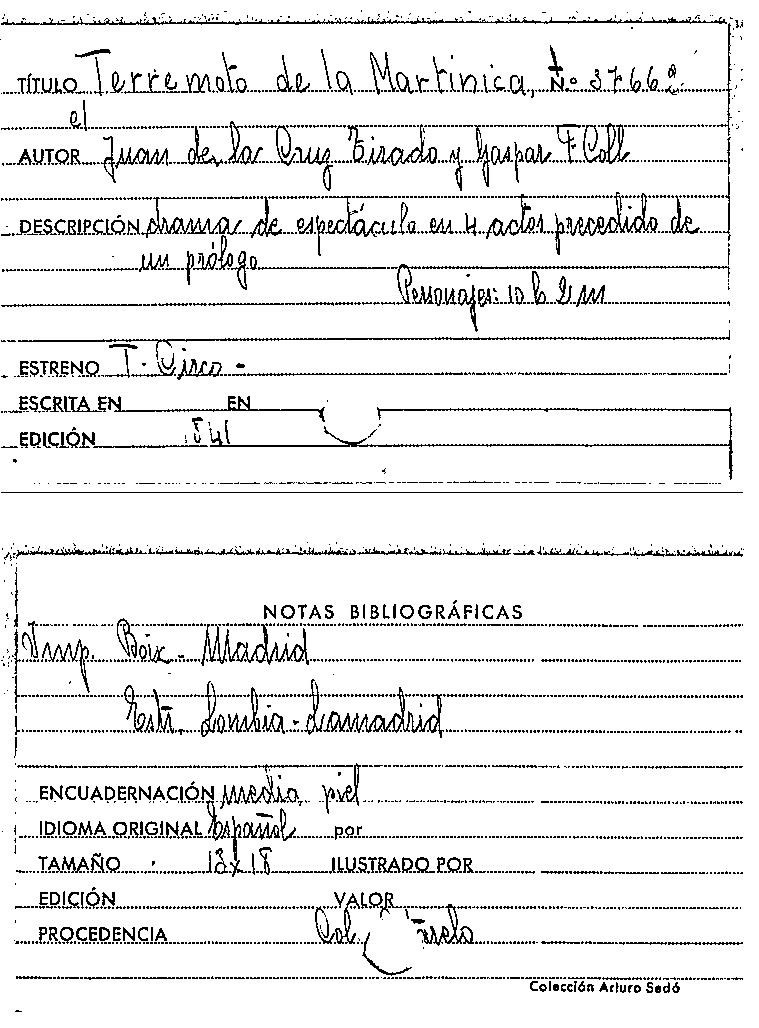 TÍTULO Terremoto de la Martinica, N.º 37662
el
AUTOR Juan de la Cruz Tirado y Gaspar F Coll
DESCRIPCIÓN drama de espectáculo en 4 actos precedido de
un prólogo
Personajes: 10 h 2 m
ESTRENO T. Circo -
ESCRITA EN EN
EDICIÓN 1841
NOTAS BIBLIOGRÁFICAS
Imp. Boix - Madrid
Estr. Lombia - Lamadrid
ENCUADERNACIÓN media piel
IDIOMA ORIGINAL Español por
TAMAÑO 13x18 ILUSTRADO POR
EDICIÓN VALOR
PROCEDENCIA Col.
Colección Arturo Sedó